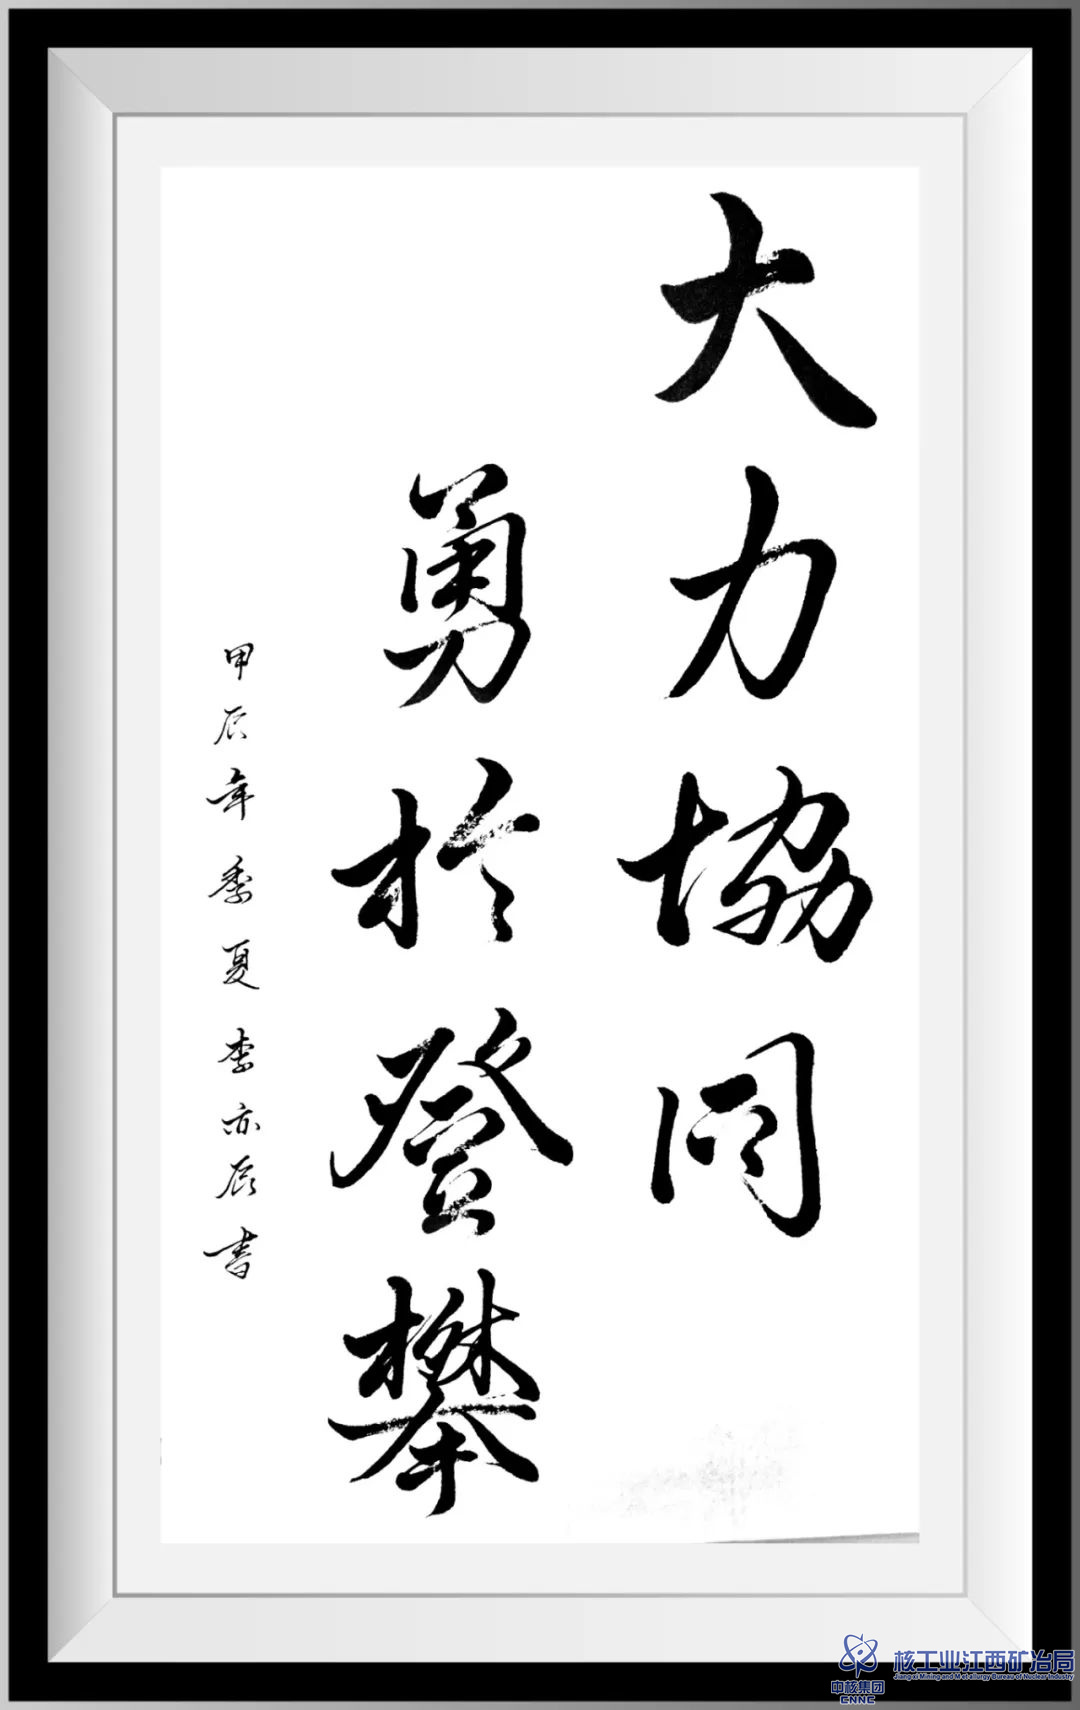 大力協同
勇於登攀
甲辰年季夏李亦辰書
核工业江西矿冶局
Jiangxi Mining and Metallurgy Bureau of Nuclear Industry
中核集团
CNNC